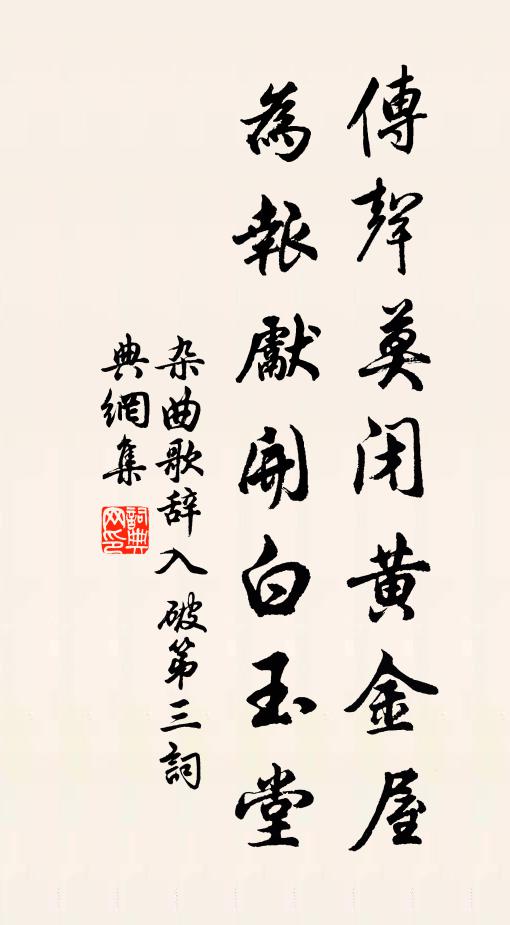 傳聲莫闭黄金屋
為報獻開白玉堂
杂曲歌辞入破第三詞
典網集
詞典网印